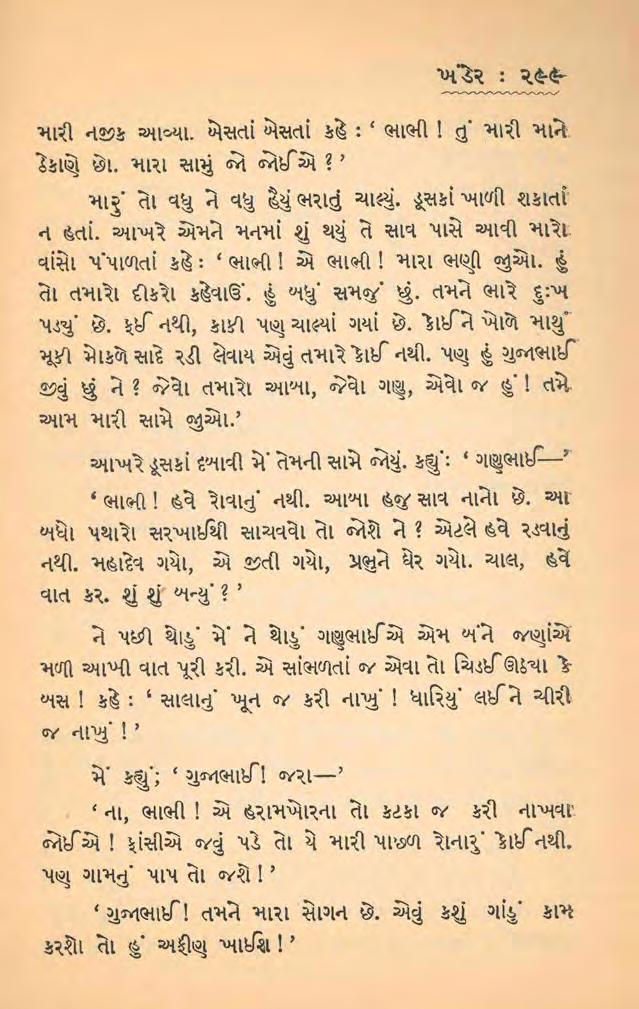 ખંડેર : ૨૯૯
મારી નજીક આવ્યા. બેસતાં બેસતાં કહે : ‘ ભાભી ! તું મારી માને
ઠેકાણે છો. મારા સામું જો જોઈએ ? ’
મારું તો વધુ ને વધુ હૈયું ભરાતું ચાલ્યું. ડૂસકાં ખાળી શકાતાં
ન હતાં. આખરે એમને મનમાં શું થયું તે સાવ પાસે આવી મારો
વાંસો પંપાળતાં કહે : ‘ ભાભી ! એ ભાભી ! મારા ભણી જુઓ. હું
તો તમારો દીકરો કહેવાઉં. હું બધું સમજું છું. તમને ભારે દુઃખ
પડ્યું છે. ફઈ નથી, કાકી પણ ચાલ્યાં ગયાં છે. કોઈને ખોળે માથું
મૂકી મોકળે સાદે રડી લેવાય એવું તમારે કોઈ નથી. પણ હું ગુજાભાઈ
જીવું છું ને ? જેવો તમારો આબા, જેવો ગણુ, એવો જ હું ! તમે
આમ મારી સામે જુઓ.’
આખરે ડૂસકાં દબાવી મેં તેમની સામે જોયું. કહ્યું : ‘ ગણુભાઈ—’
‘ ભાભી ! હવે રોવાનું નથી. આબા હજુ સાવ નાનો છે. આ
બધો પથારો સરખાઈથી સાચવવો તો જોશે ને ? એટલે હવે રડવાનું
નથી. મહાદેવ ગયો, એ જીતી ગયો, પ્રભુને ઘેર ગયો. ચાલ, હવે
વાત કર. શું શું બન્યું ? ’
ને પછી થોડું મેં ને થોડું ગણુભાઈએ એમ બંને જણાંએ
મળી આખી વાત પૂરી કરી. એ સાંભળતાં જ એવા તો ચિડઈ ઊઠ્યા કે
બસ ! કહે : ‘ સાલાનું ખૂન જ કરી નાખું ! ધારિયું લઈને ચીરી
જ નાખું ! ’
મેં કહ્યું; ‘ ગુજાભાઈ! જરા—’
‘ ના, ભાભી ! એ હરામખોરના તો કટકા જ કરી નાખવા
જોઈએ ! ફાંસીએ જવું પડે તો યે મારી પાછળ રોનારું કોઈ નથી.
પણ ગામનું પાપ તો જશે ! ’
‘ ગુજાભાઈ! તમને મારા સોગન છે. એવું કશું ગાંડું કામ
કરશો તો હું અફીણ ખાઈશ ! ’